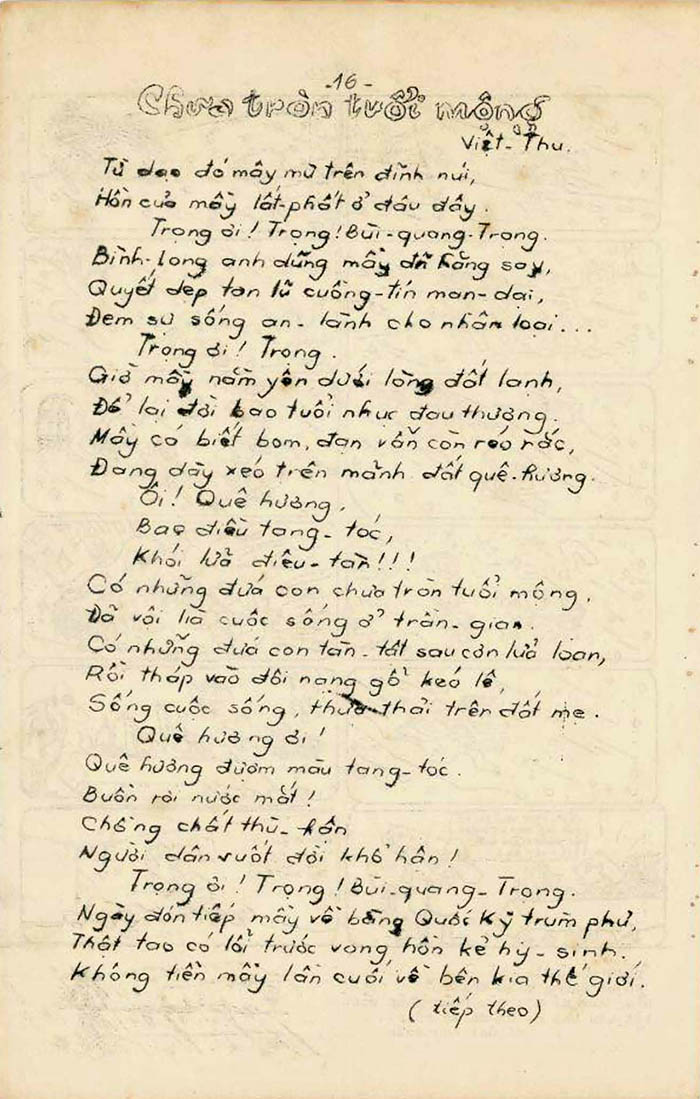 -16-
Chưa tròn tuổi mộng
Việt-Thu.
Từ dạo đó mây mù trên đỉnh núi,
Hồn của mầy lất-phất ở đâu đây.
Trọng ơi! Trọng! Bùi-quang-Trọng.
Bình-long anh dũng mầy đã hăng say,
Quyết dẹp tan lũ cuồng-tín man-dại,
Đem sự sống an-lành cho nhân loại...
Trọng ơi! Trọng.
Giờ mầy nằm yên dưới lòng đất lạnh,
Để lại đời bao tuổi nhục đau thương.
Mầy có biết bom, đạn vẫn còn réo rắc,
Đang dày xéo trên mảnh đất quê-hương.
Ôi! Quê hương,
Bao điều tang-tóc,
Khói lửa điêu-tàn!!!
Có những đứa con chưa tròn tuổi mộng,
Đã vội lìa cuộc sống ở trần-gian.
Có những đứa con tàn-tật sau cơn lửa loạn,
Rồi tháp vào đôi nạng gổ kéo lê,
Sống cuộc sống, thừa thải trên đất mẹ.
Quê hương ơi!
Quê hương đượm màu tang-tóc.
Buồn rơi nước mắt!
Chồng chất thù-hận
Người dân suốt đời khổ hận!
Trọng ơi! Trọng! Bùi-quang-Trọng.
Ngày đón tiếp mầy về bằng Quốc Kỳ trùm phủ,
Thật tao có lổi trước vong hồn kẻ hy-sinh.
Không tiển mầy lần cuối về bên kia thế giới.
(tiếp theo)